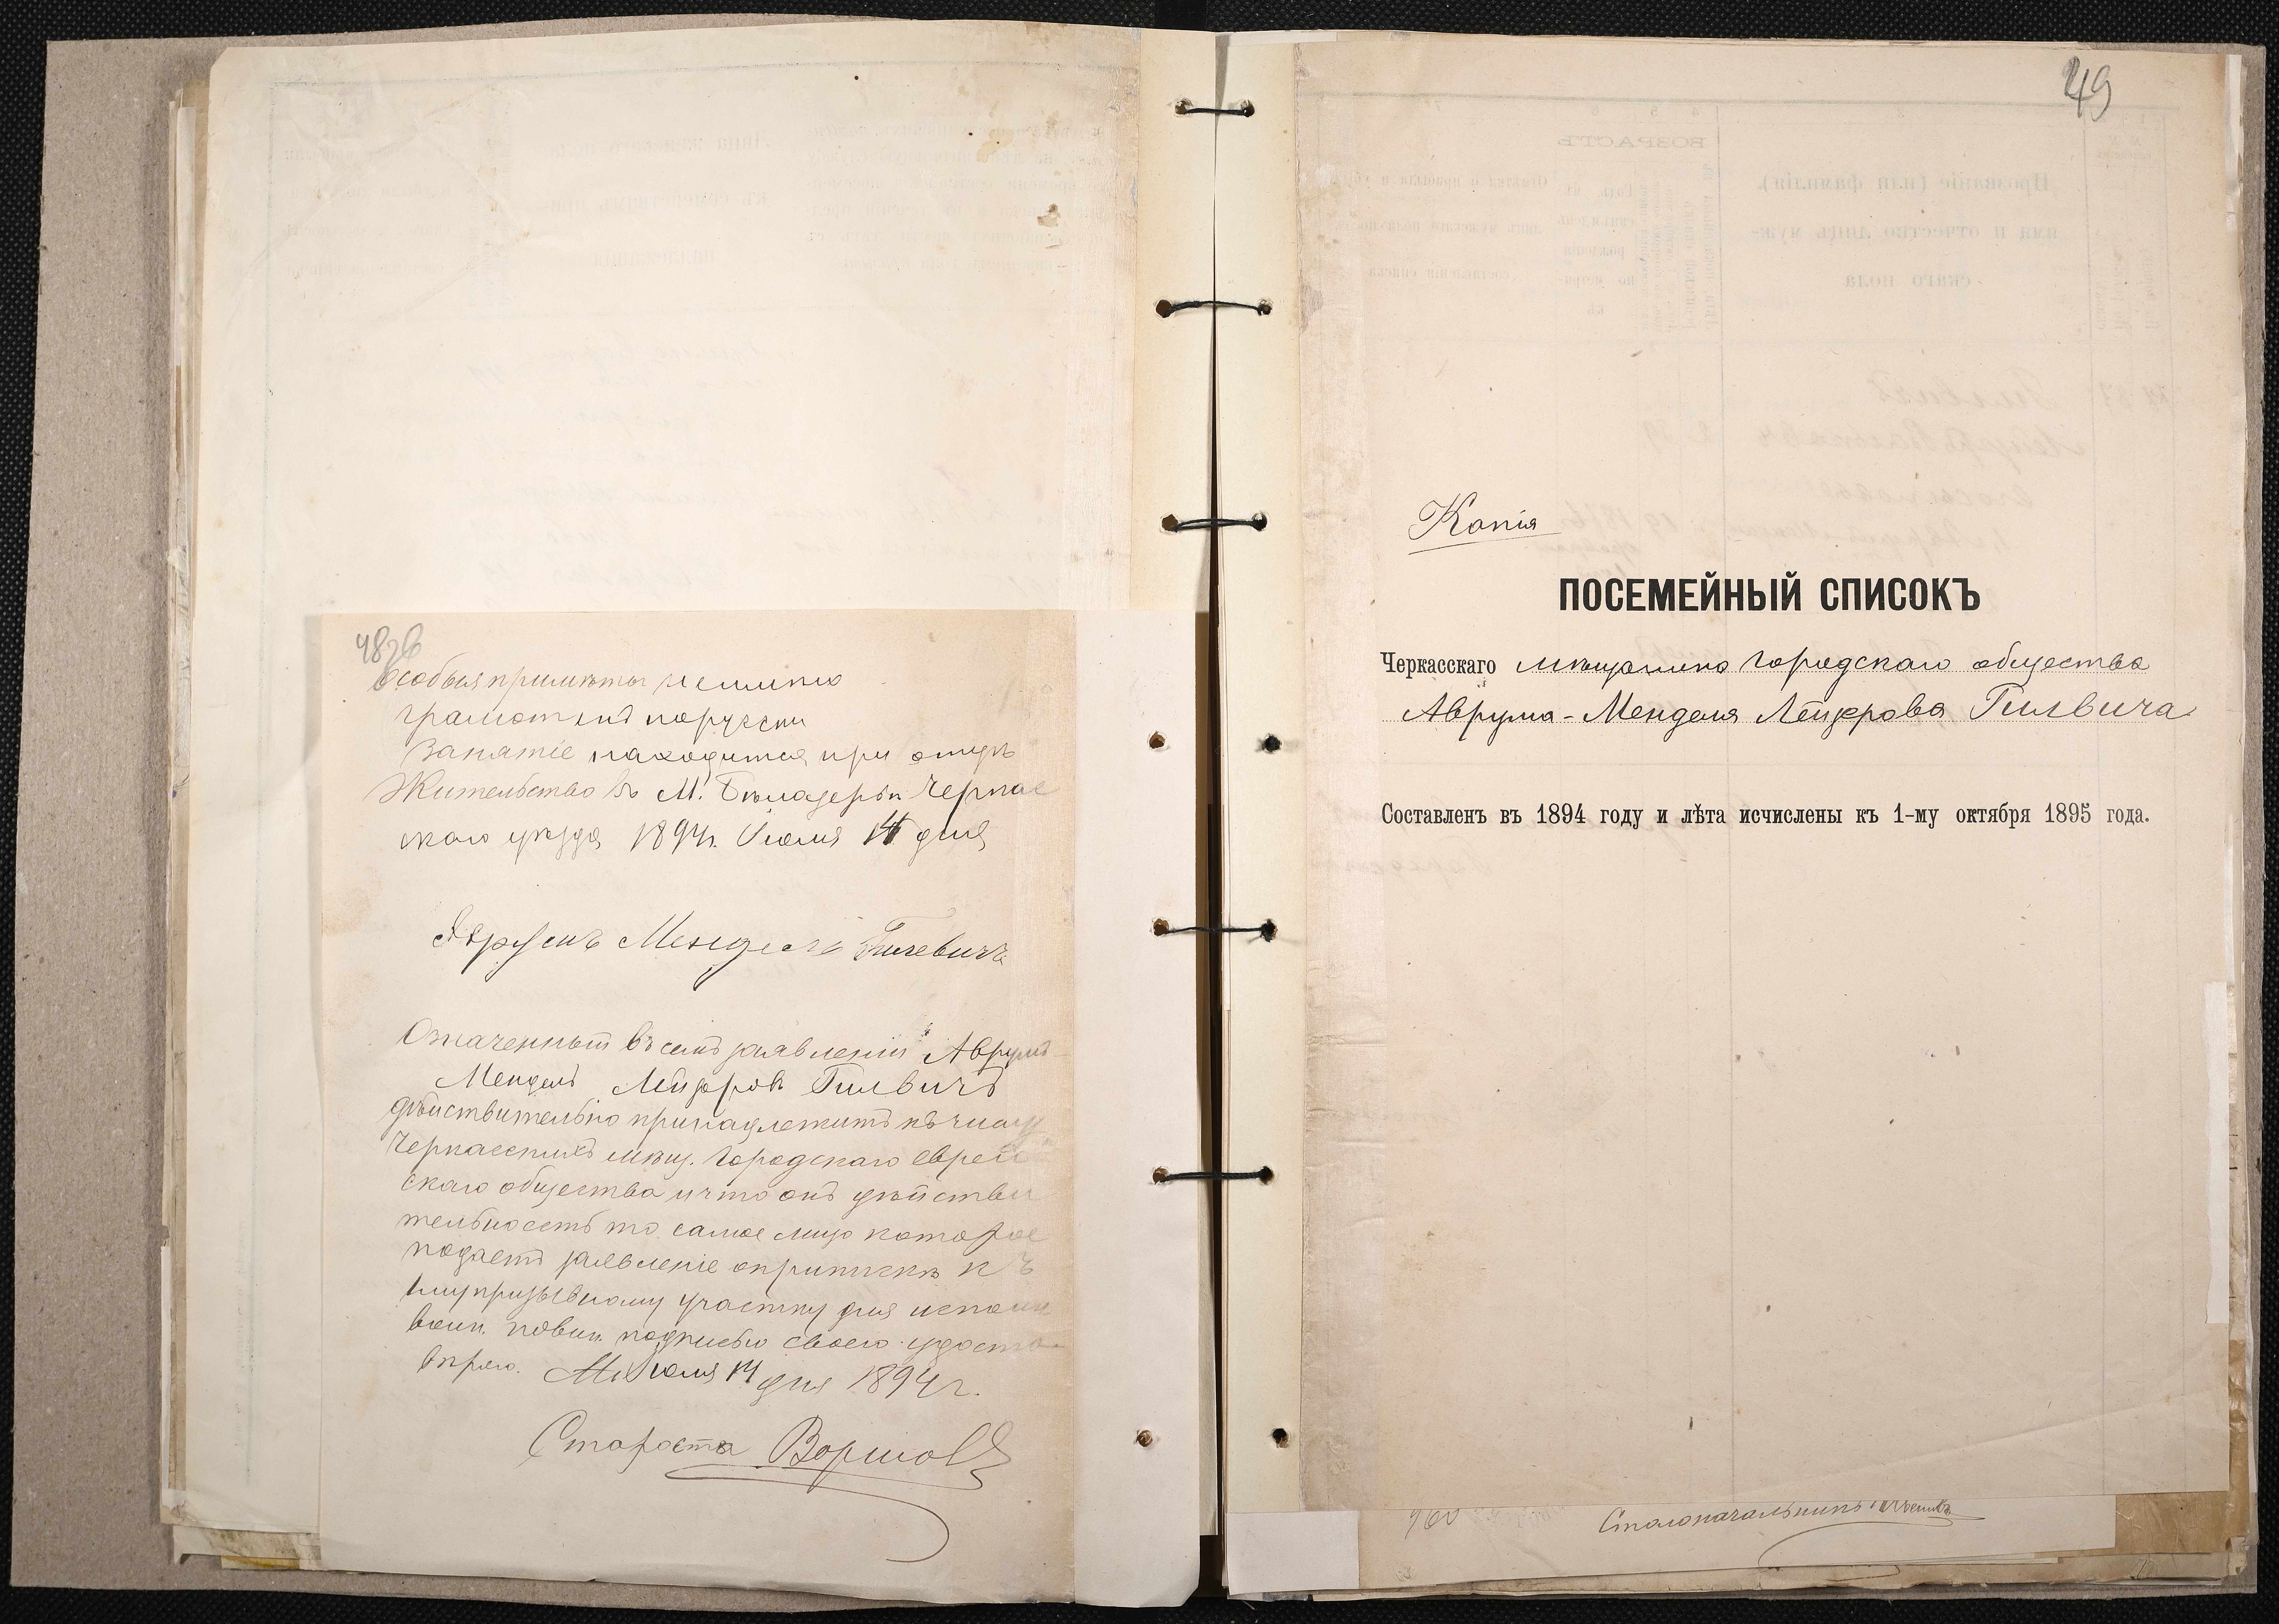 48 об
Особыя приметы неимѣю
грамотенъ порусски
Занятіе находится при отцѣ
Жительство въ М. Бѣлазерьи Черкас
скаго уѣзда 1894г. Іюля 14 дня
Аврумъ Мендель Гилевичъ
Означенный въ семъ заявленіи Аврумъ-
Мендель Лейзеровъ Гилвичъ
дѣйствительно принадлежитъ къ числу
Черкасскихъ мѣщ. Городскаго еврей
скаго общества и что онъ дѣйстви
тельно есть то самое лицо которое
подаетъ заявленіе о припискѣ къ
1му призывному участку для исполн
воин. повин. подписью своею удосто
вѣряю. Іюля 14 дня 1894 г.
Староста
49
Копія
ПОСЕМЕЙНЫЙ СПИСОКЪ
Черкасскаго мѣщанина Городскаго общества
Аврума-Менделя Лейзерова Гилвича
Составленъ въ 1894 году и лѣта исчислены къ 1-му октября 1895 года.
Столоначальникъ